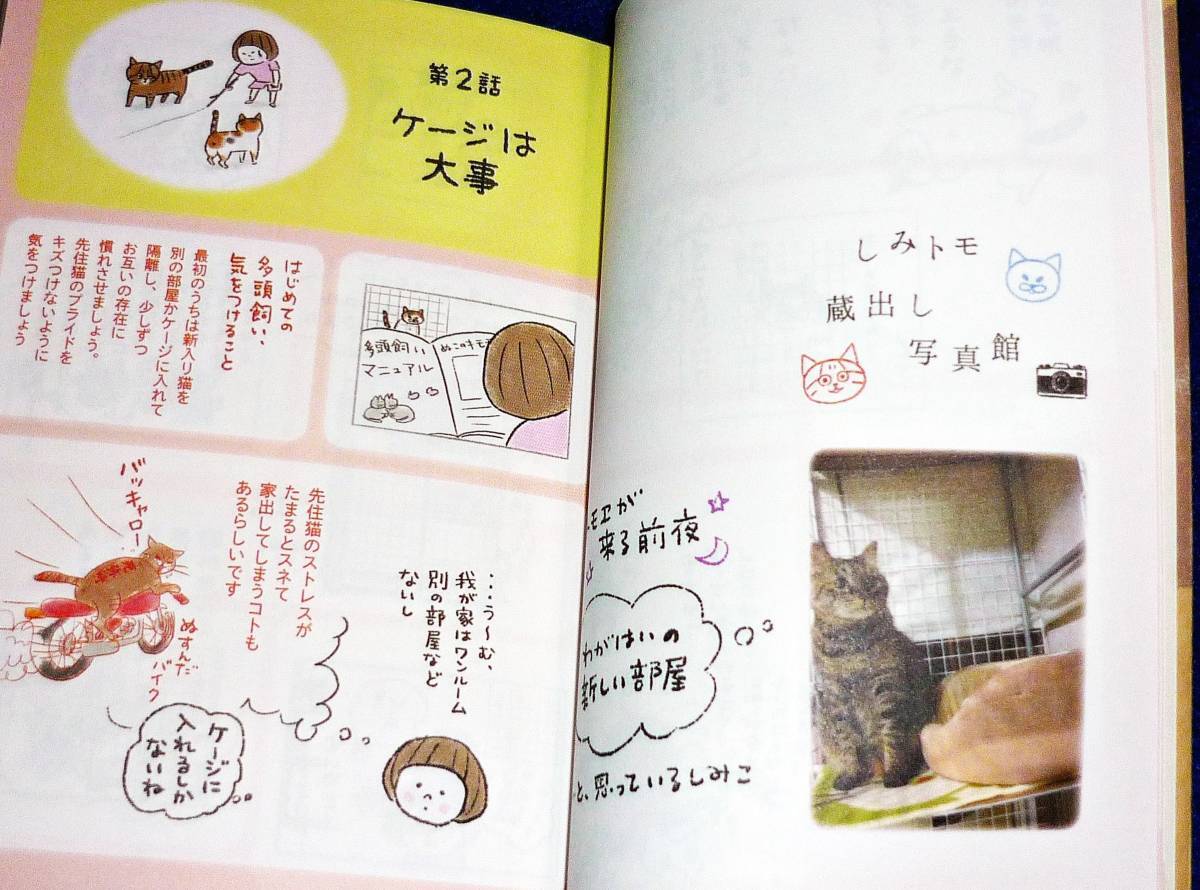 しみトモ
蔵出し
写真館
モエが
来る前夜
わがはいの
新しい部屋
と、思っているしみこ
第2話
ケージは
大事
ぬこのキモ
多頭飼い
マニュアル
はじめての
多頭飼い、
気をつけること
最初のうちは新入り猫を
別の部屋かケージに入れて
隔離し、少しずつ
お互いの存在に
慣れさせましょう。
先住猫のプライドを
キズつけないように
気をつけましょう
…う〜む、
我が家はワンルーム
別の部屋など
ないし
先住猫のストレスが
たまるとスネて
家出してしまうコトも
あるらしいです
バッキャロー!
ぬすんだ
バイク
ケージに
入れるしか
ないね